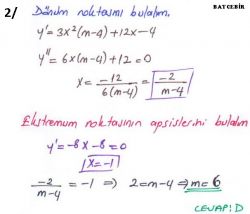 BAYCEBİR
2/ Dönüm noktasını bulalım.
y' = 3x²(m-4)+12x-4
y'' = 6x(m-4)+12=0
x = -12/6(m-4) = -2/m-4
Ekstremum noktasının apsislerini bulalım
y' = -8x-8=0
x=-1
-2/m-4 = -1 ⇒ 2=m-4 ⇒ m=6
CEVAP: D